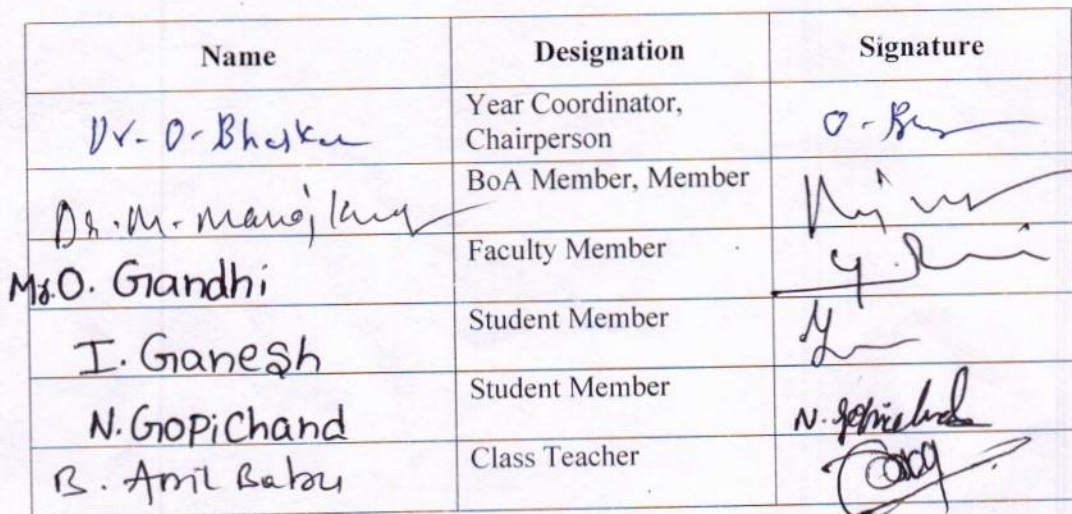 Name Designation Signature
Dr. O. Bhaskar Year Coordinator, Chairperson O. 
BoA Member, Member
Dr. M. Manoj Kumar
Mr. O. Gandhi Faculty Member
I. Ganesh Student Member
N. Gopichand Student Member N. Gopichand
B. Anil Babu Class Teacher